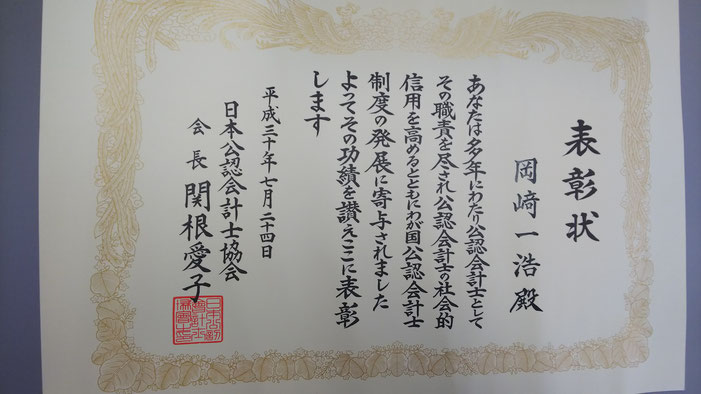 表彰状
岡﨑一浩殿
あなたは多年にわたり公認会計士として
その職責を尽され公認会計士の社会的
信用を高めるとともにわが国公認会計士
制度の発展に寄与されました
よってその功績を讃えここに表彰
します
平成三十年七月二十四日
日本公認会計士協会
会長 関根愛子